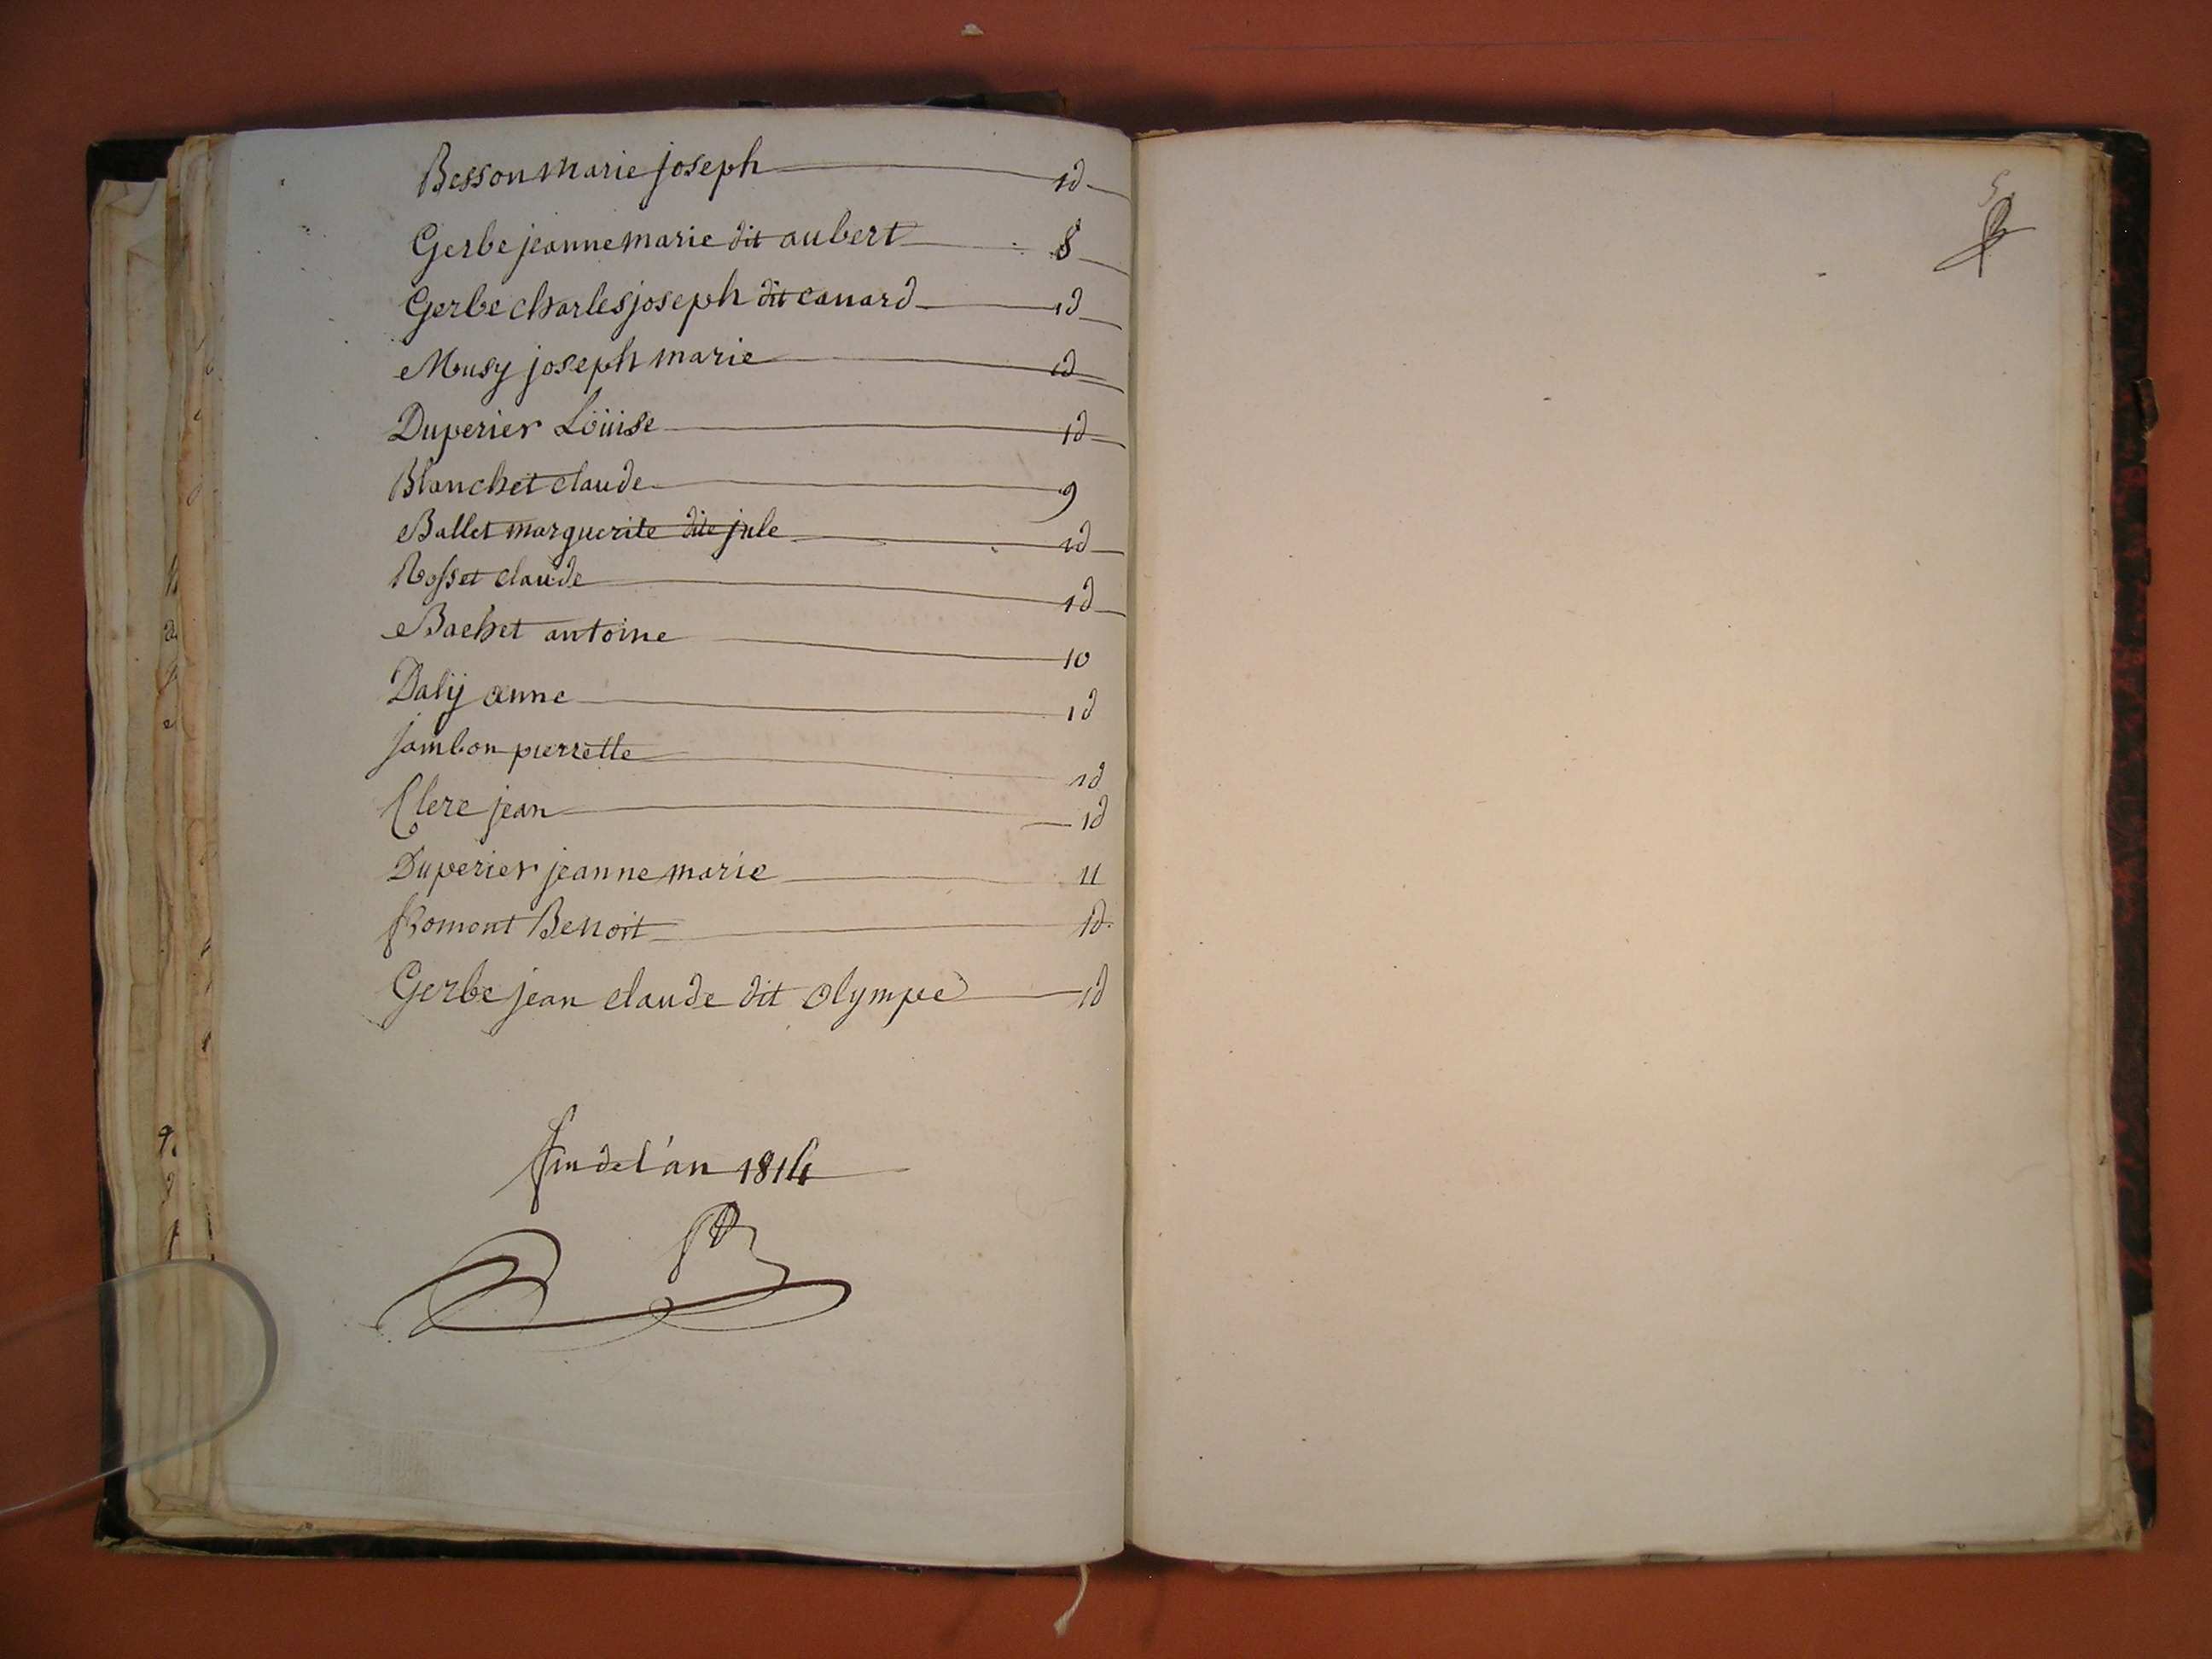 Besson marie joseph 1d
Gerbe jeanne marie dit aubert 8
Gerbe charles joseph dit canard 1d
Musy joseph marie 1d
Duperier Loüise 1d
Blanchet claude 9
Ballet marguerite dite jule 1d
Rosset claude 1d
Bachet antoine 10
Dalÿ anne 1d
jambon pierrette 1d
Clerc jean 1d
Duperier jeanne marie 11
Romont Benoit 1d
Gerbe jean claude dit olympe 1d
fin de l'an 1814